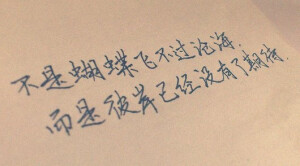 不是蝴蝶飞不过沧海，
而是彼岸已经没有了期待.